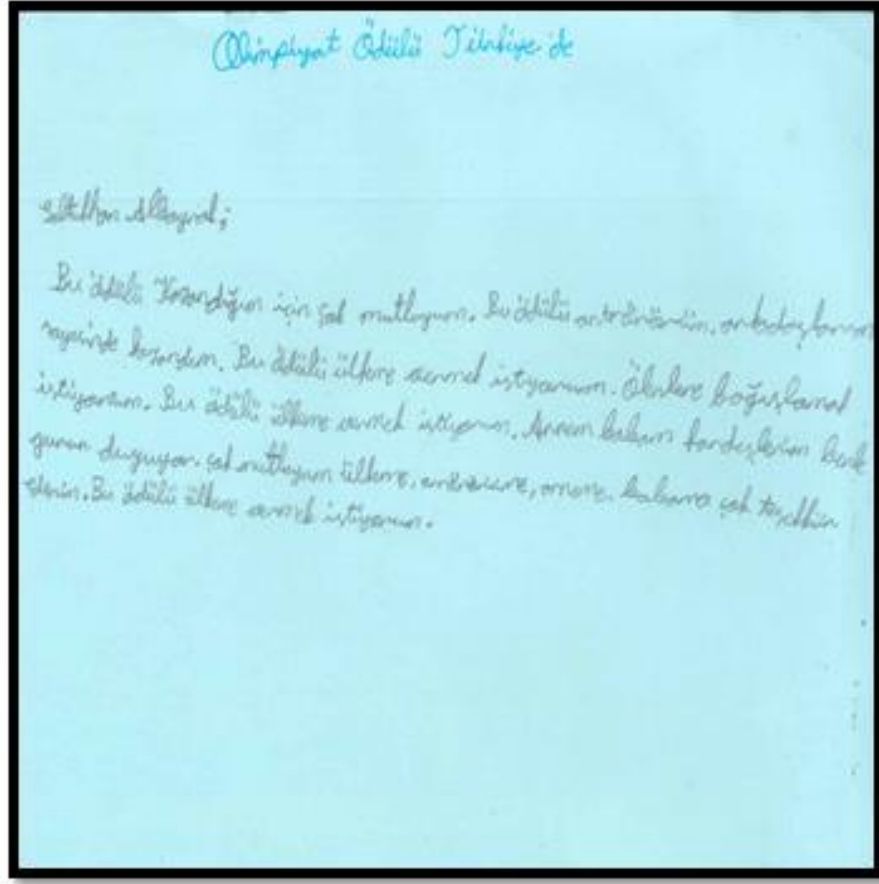 Olimpiyat Ödülü Türkiye'de
Bu ödülü kazandığım için çok mutluyum. Bu ödülü antrönörümün, arkadaşlarımın
sayesinde kazandım. Bu ödülü ülkeme vermek istiyorum. Ölenlere bağışlamak
istiyorum. Bu ödülü ülkeme vermek istiyorum. Annem babam kardeşlerim benle
gurur duyuyor. çok mutluyum ülkeme, anneme, babama çok teşekkür
ederim. Bu ödülü ülkeme vermek istiyorum.